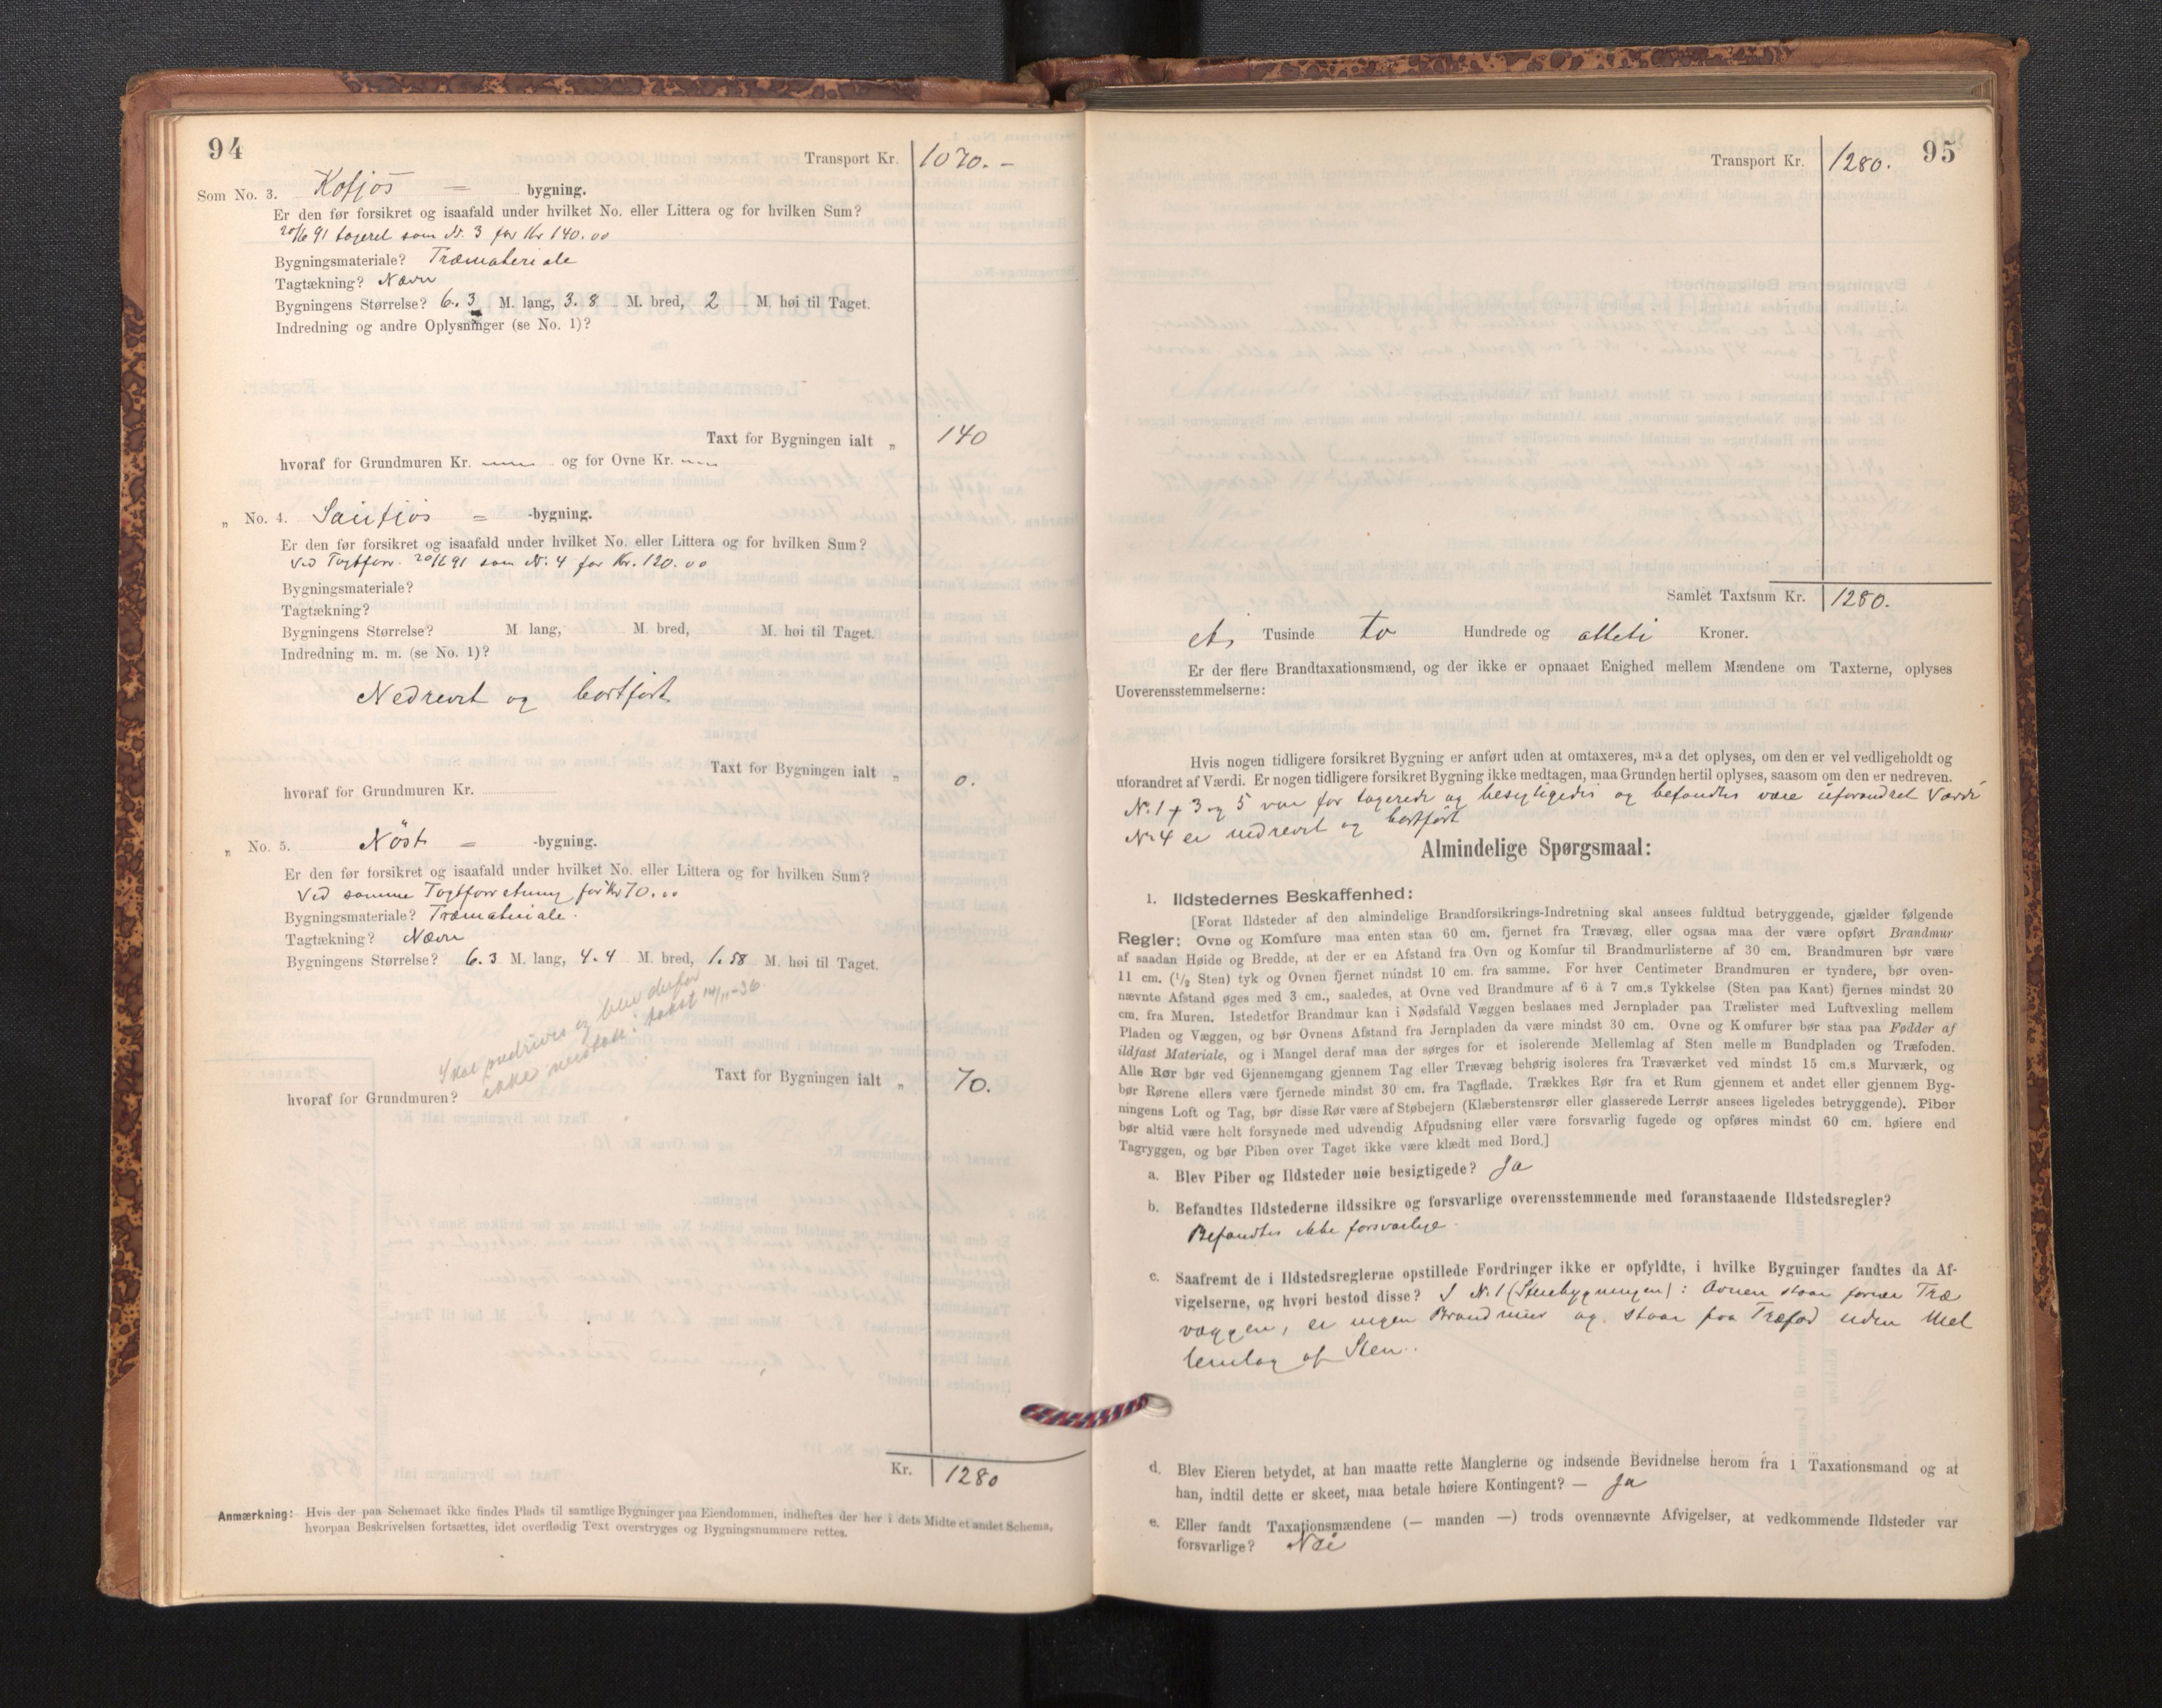 94
Transport Kr. 1070. -
Som No. 3. Kofjøs = bygning.
Er den før forsikret og isaafald under hvilket No. eller Littera og for hvilken Sum?
20/6 91 tageret som N. 3 for Kr 140.00
Bygningsmateriale? Træmateriale
Tagtækning? Næver
Bygningens Størrelse? 6.3 M. lang, 3.8 M. bred, 2 M. høi til Taget.
Indredning og andre Oplysninger (se No. 1)?
Taxt for Bygningen ialt „ 140
hvoraf for Grundmuren Kr. og for Ovne Kr.
„ No. 4. = -bygning.
Er den før forsikret og isaafald under hvilket No. eller Littera og for hvilken Sum?
Ved Togtforr. 20/6 91 som N. 4 for Kr. 120.00
Bygningsmateriale?
Tagtækning?
Bygningens Størrelse? M. lang, M. bred, M. høi til Taget.
Indredning m. m. (se No. 1)?
Nedrevet og bortført
Taxt for Bygningen ialt „ 0.
hvoraf for Grundmuren Kr.
„ No. 5. Nöst = -bygning.
Er den før forsikret og isaafald under hvilket No. eller Littera og for hvilken Sum?
Ved samme Togtforretning for Kr 70.00
Bygningsmateriale? Træmateriale.
Tagtækning? Næver
Bygningens Størrelse? 6.3 M. lang, 4.4 M. bred, 1.58 M. høi til Taget.
Skal nedrives og blev derfor
ikke medtatt i takst 14/11-36.
Taxt for Bygningen ialt „ 70.
hvoraf for Grundmuren?
Kr. 1280
Anmærkning: Hvis der paa Schemaet ikke findes Plads til samtlige Bygninger paa Eiendommen, indheftes der her i dets Midte et andet Schema,
hvorpaa Beskrivelsen fortsættes, idet overflødig Text overstryges og Bygningsnummere rettes.
95
Transport Kr. 1280.
Samlet Taxtsum Kr. 1280.
et Tusinde to Hundrede og otteti Kroner.
Er der flere Brandtaxationsmænd, og der ikke er opnaaet Enighed mellem Mændene om Taxterne, oplyses
Uoverensstemmelserne:
Hvis nogen tidligere forsikret Bygning er anført uden at omtaxeres, maa det oplyses, om den er vel vedligeholdt og
uforandret af Værdi. Er nogen tidligere forsikret Bygning ikke medtagen, maa Grunden hertil oplyses, saasom om den er nedreven.
N. 1 + 3 og 5 var før tagerede og besigtigedes og befandtes være uforandret Værdi
Nr 4 er nedrevet og bortført
Almindelige Spørgsmaal:
1. Ildstedernes Beskaffenhed:
[Forat Ildsteder af den almindelige Brandforsikrings-Indretning skal ansees fuldtud betryggende, gjælder følgende
Regler: Ovne og Komfure maa enten staa 60 cm. fjernet fra Trævæg, eller ogsaa maa der være opført Brandmur
af saadan Høide og Bredde, at der er en Afstand fra Ovn og Komfur til Brandmurlisterne af 30 cm. Brandmuren bør være
11 cm. (1/2 Sten) tyk og Ovnen fjernet mindst 10 cm. fra samme. For hver Centimeter Brandmuren er tyndere, bør oven-
nævnte Afstand øges med 3 cm., saaledes, at Ovne ved Brandmure af 6 à 7 cm.s Tykkelse (Sten paa Kant) fjernes mindst 20
cm. fra Muren. Istedetfor Brandmur kan i Nødsfald Væggen beslaaes med Jernplader paa Trælister med Luftvexling mellem
Pladen og Væggen, og bør Ovnens Afstand fra Jernpladen da være mindst 30 cm. Ovne og Komfurer bør staa paa Fødder af
ildfast Materiale, og i Mangel deraf maa der sørges for et isolerende Mellemlag af Sten mellem Bundpladen og Træfoden.
Alle Rør bør ved Gjennemgang gjennem Tag eller Trævæg behørig isoleres fra Træværket ved mindst 15 cm.s Murværk, og
bør Rørene ellers være fjernede mindst 30 cm. fra Tagflade. Trækkes Rør fra et Rum gjennem et andet eller gjennem Byg-
ningens Loft og Tag, bør disse Rør være af Støbejern (Klæberstensrør eller glasserede Lerrør ansees ligeledes betryggende). Piber
bør altid være helt forsynede med udvendig Afpudsning eller være forsvarlig fugede og opføres mindst 60 cm. høiere end
Tagryggen, og bør Piben over Taget ikke være klædt med Bord.]
a. Blev Piber og Ildsteder nøie besigtigede? Ja
b. Befandtes Ildstederne ildssikre og forsvarlige overensstemmende med foranstaaende Ildstedsregler?
Befandtes ikke forsvarlige.
c. Saafremt de i Ildstedsreglerne opstillede Fordringer ikke er opfyldte, i hvilke Bygninger fandtes da Af-
vigelserne, og hvori bestod disse? I N. 1 (Stuebygningen): Ovnen staar Træ
væggen, er ingen Brandmur og staar paa Træfod uden Mel
lemlag af Sten.
d. Blev Eieren betydet, at han maatte rette Manglerne og indsende Bevidnelse herom fra i Taxationsmand og at
han, indtil dette er skeet, maa betale høiere Kontingent? — Ja
e. Eller fandt Taxationsmændene (— manden —) trods ovennævnte Afvigelser, at vedkommende Ildsteder var
forsvarlige? Nei